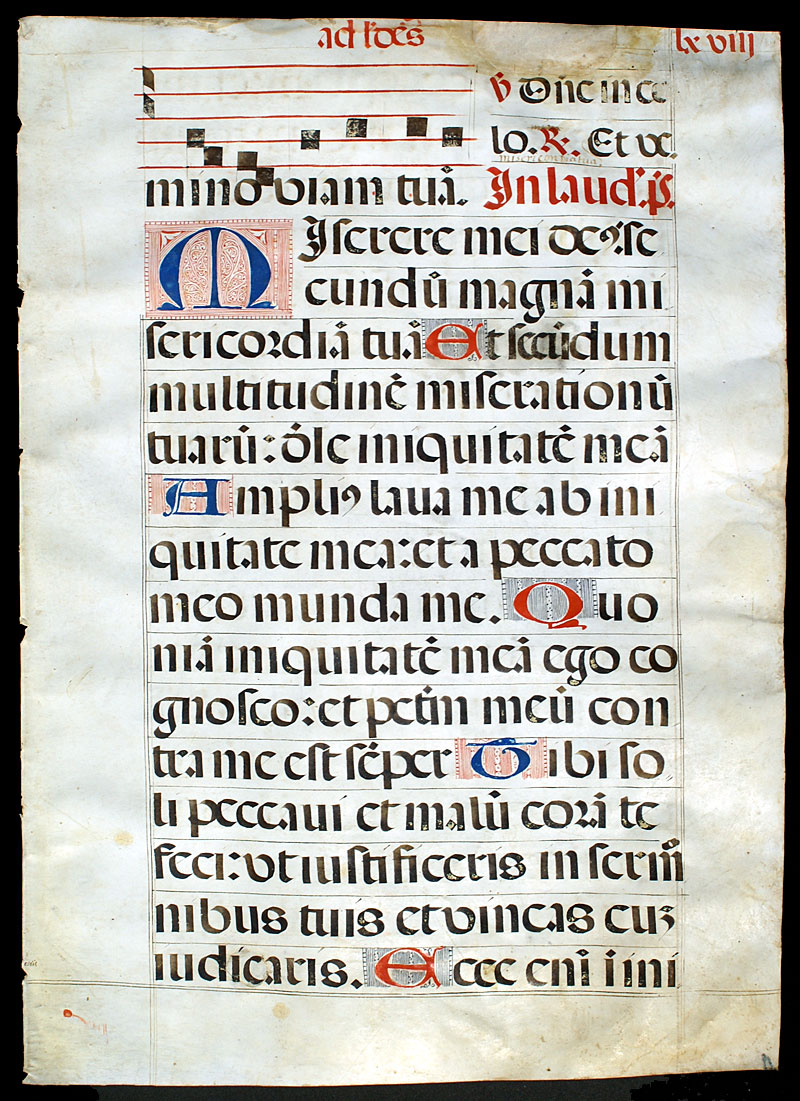 ad lŏes lxviii
V Dñe in ce
lo. R. Et ve.
misericordia tua
mino viam tuā. In laud'. ps.
Miserere mei de9: se
cundū magnā mi
sericordiā tuā Et secūdum
multitudinē miserationū
tuarū: dele iniquitatē meā
Ampli9 laua me ab ini
quitate mea: et a peccato
meo munda me. Quo
niā iniquitatē meā ego co
gnosco: et pctm̄ meū con
tra me est sēper Tibi so
li peccaui et malū corā te
feci: vt iustificeris in sermo
nibus tuis et vincas cuȝ
iudicaris. Ecce eni ī ini